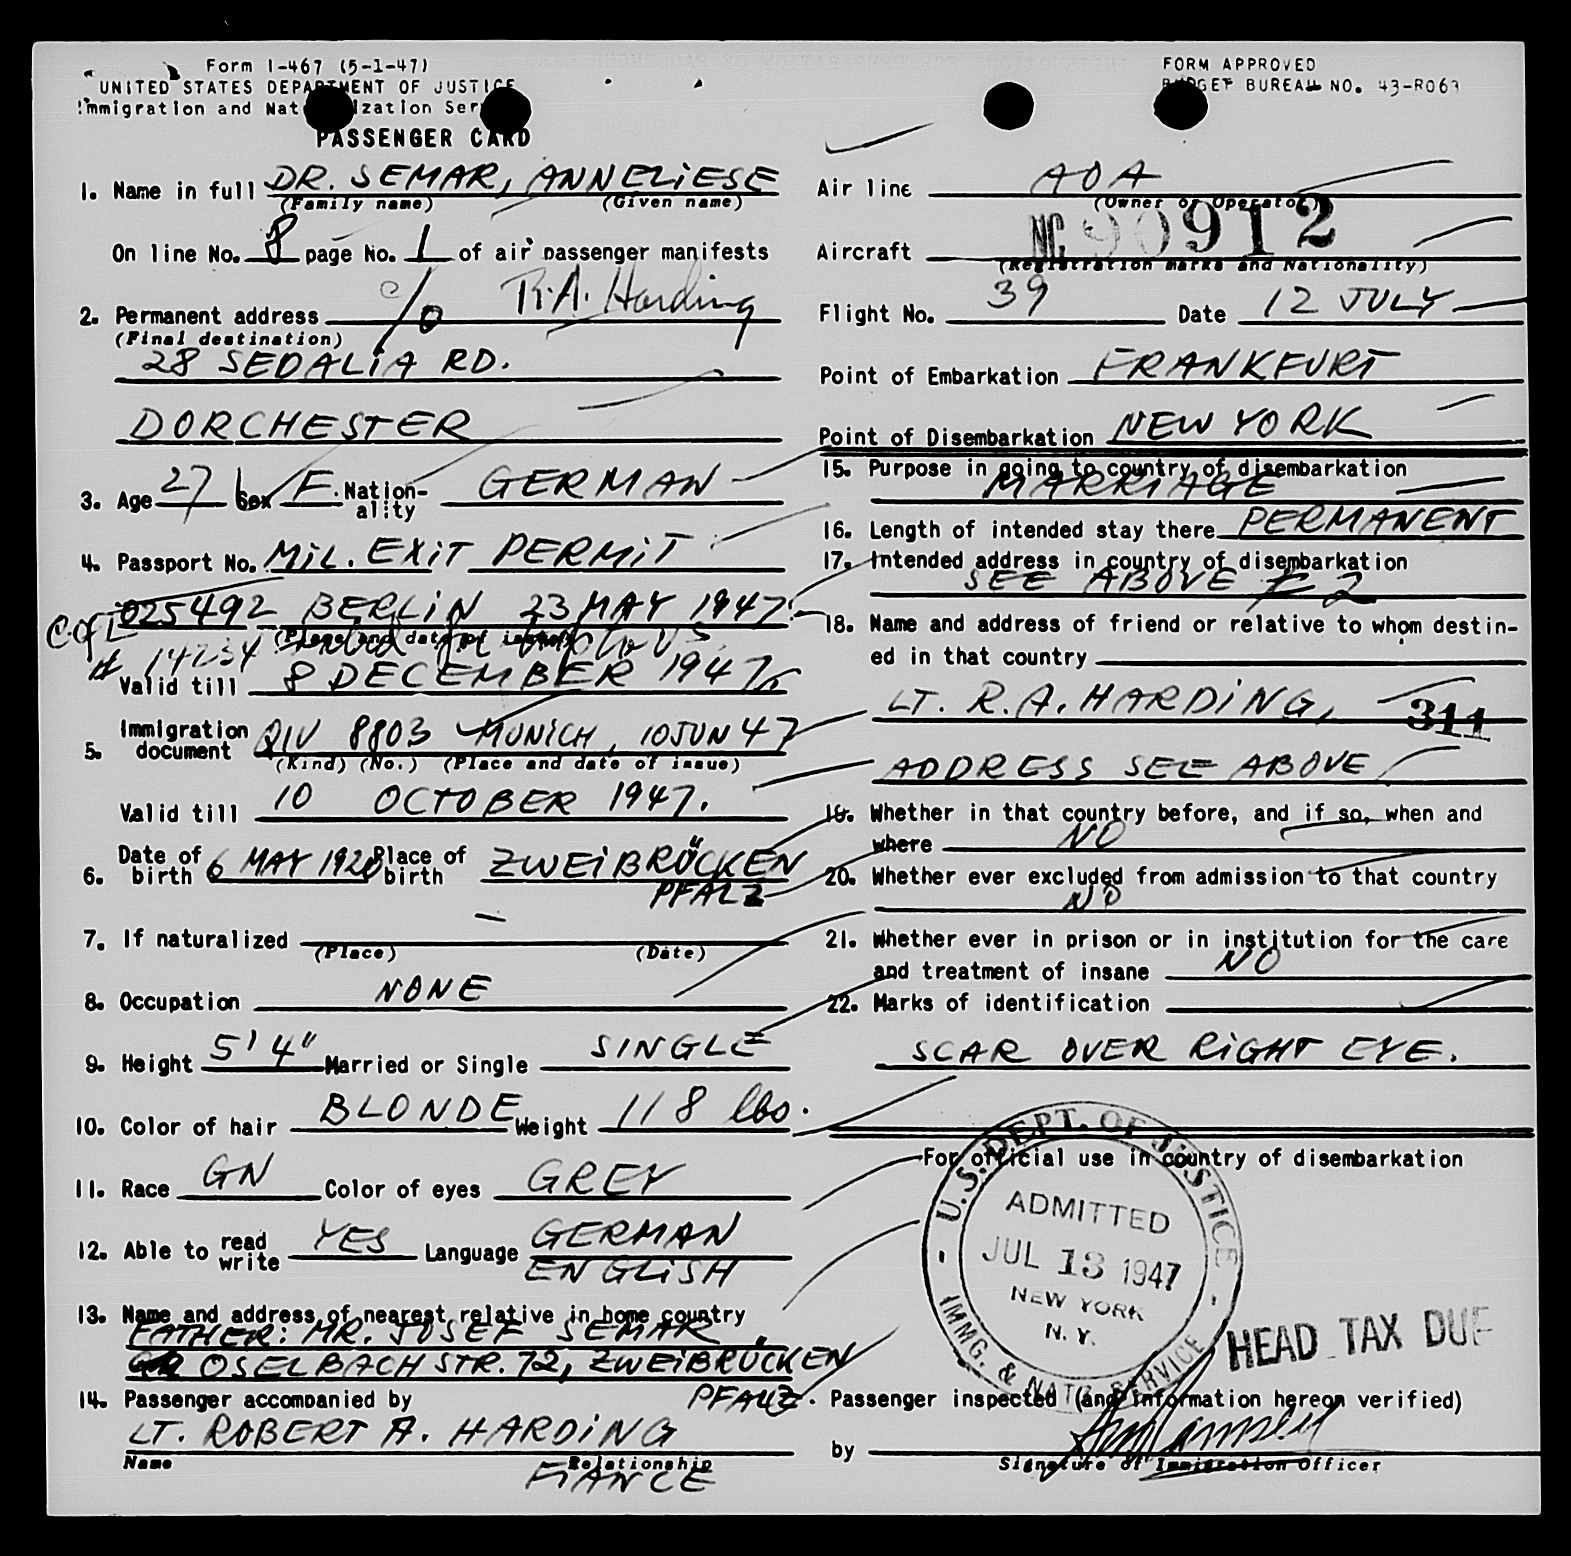 Form I-467 (5-1-47)
UNITED STATES DEPARTMENT OF JUSTICE
Immigration and Naturalization Ser
PASSENGER CARD
FORM APPROVED
BUDGET BUREAU NO. 43-R063
1. Name in full DR. SEMAR, ANNELiESE
(Family name) (Given name)
On line No. 8 page No. 1 of air passenger manifests
2. Permanent address c/o R.A. Harding
(Final destination)
28 SEDALiA RD.
DORCHESTER
3. Age 27 Sex F. Nation-ality GERMAN
4. Passport No. MiL. EXiT PERMiT
025492 BERLiN 23 MAY 1947
(Place and date of issue)
C of I
# 14234
Valid till 8 DECEMBER 1947
5. Immigration document QIV 8803 MUNiCH, 10 JUN 47
(Kind) (No.) (Place and date of issue)
Valid till 10 OCTOBER 1947.
6. Date of birth 6 MAY 1920 Place of birth ZWEiBRÜCKEN
PFALZ
7. If naturalized –
(Place) (Date)
8. Occupation NONE
9. Height 5' 4" Married or Single SINGLE
10. Color of hair BLONDE Weight 118 lbs.
11. Race GN Color of eyes GREY
12. Able to read write YES Language GERMAN
ENGLiSH
13. Name and address of nearest relative in home country
FATHER: MR. JOSEF SEMAR
OSELBACHSTR. 72, ZWEiBRÜCKEN
PFALZ.
14. Passenger accompanied by
LT. ROBERT A. HARDiNG
Name Relationship
FiANCE
Air line AOA
(Owner or Operator)
Aircraft NC 90912
(Registration marks and Nationality)
Flight No. 39 Date 12 JULY
Point of Embarkation FRANKFURT
Point of Disembarkation NEW YORK
15. Purpose in going to country of disembarkation
MARRiAGE
16. Length of intended stay there PERMANENT
17. Intended address in country of disembarkation
SEE ABOVE # 2
18. Name and address of friend or relative to whom destin-
ed in that country
LT. R.A. HARDiNG,
311
ADDRESS SEE ABOVE
19. Whether in that country before, and if so, when and
where NO
20. Whether ever excluded from admission to that country
NO
21. Whether ever in prison or in institution for the care
and treatment of insane NO
22. Marks of identification
SCAR OVER RiGHT EYE.
For official use in country of disembarkation
U.S. DEPT. OF JUSTICE
ADMITTED
JUL 13 1947
NEW YORK
N. Y.
IMMG. & NATZ. SERVICE
HEAD TAX DUE
Passenger inspected (and information hereon verified)
by
Signature of Immigration Officer